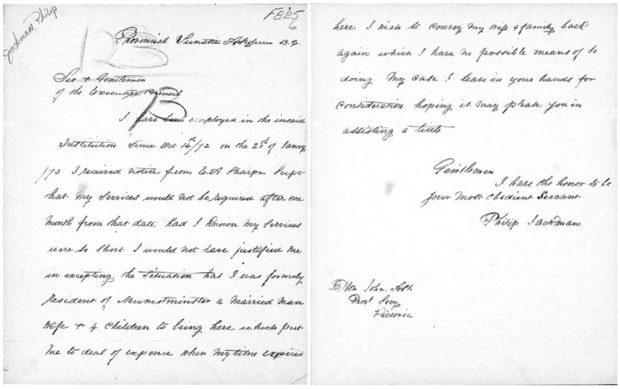 Jackman Philip
F 825
6
Provincial Lunatic Asylum B.C.
Sir & Gentlemen
of the Executive Council
I have been employed in the insaid
Institution Since Dec 14th/72 on the 2d of Janay
/73 I received notice from Sharpe Supt
that my Services would not be required after one
month from that date Had I known my Services
were so Short I would not have justified me
in excepting the Situation has I was formely
resident of Newestminster a Married Man
Wife & 4 Children to bring here which put
me to deal of expence when my time expired
here I wish to convey my wife & family back
again which I have no possible means of so
doing My case I leave in your hands for
Consideration hoping it may please you in
assisting a little
Gentlemen
I have the honor to be
Your Most Obedient Servant
Philip Jackman
Hon John Ash
Provl Secy
Victoria